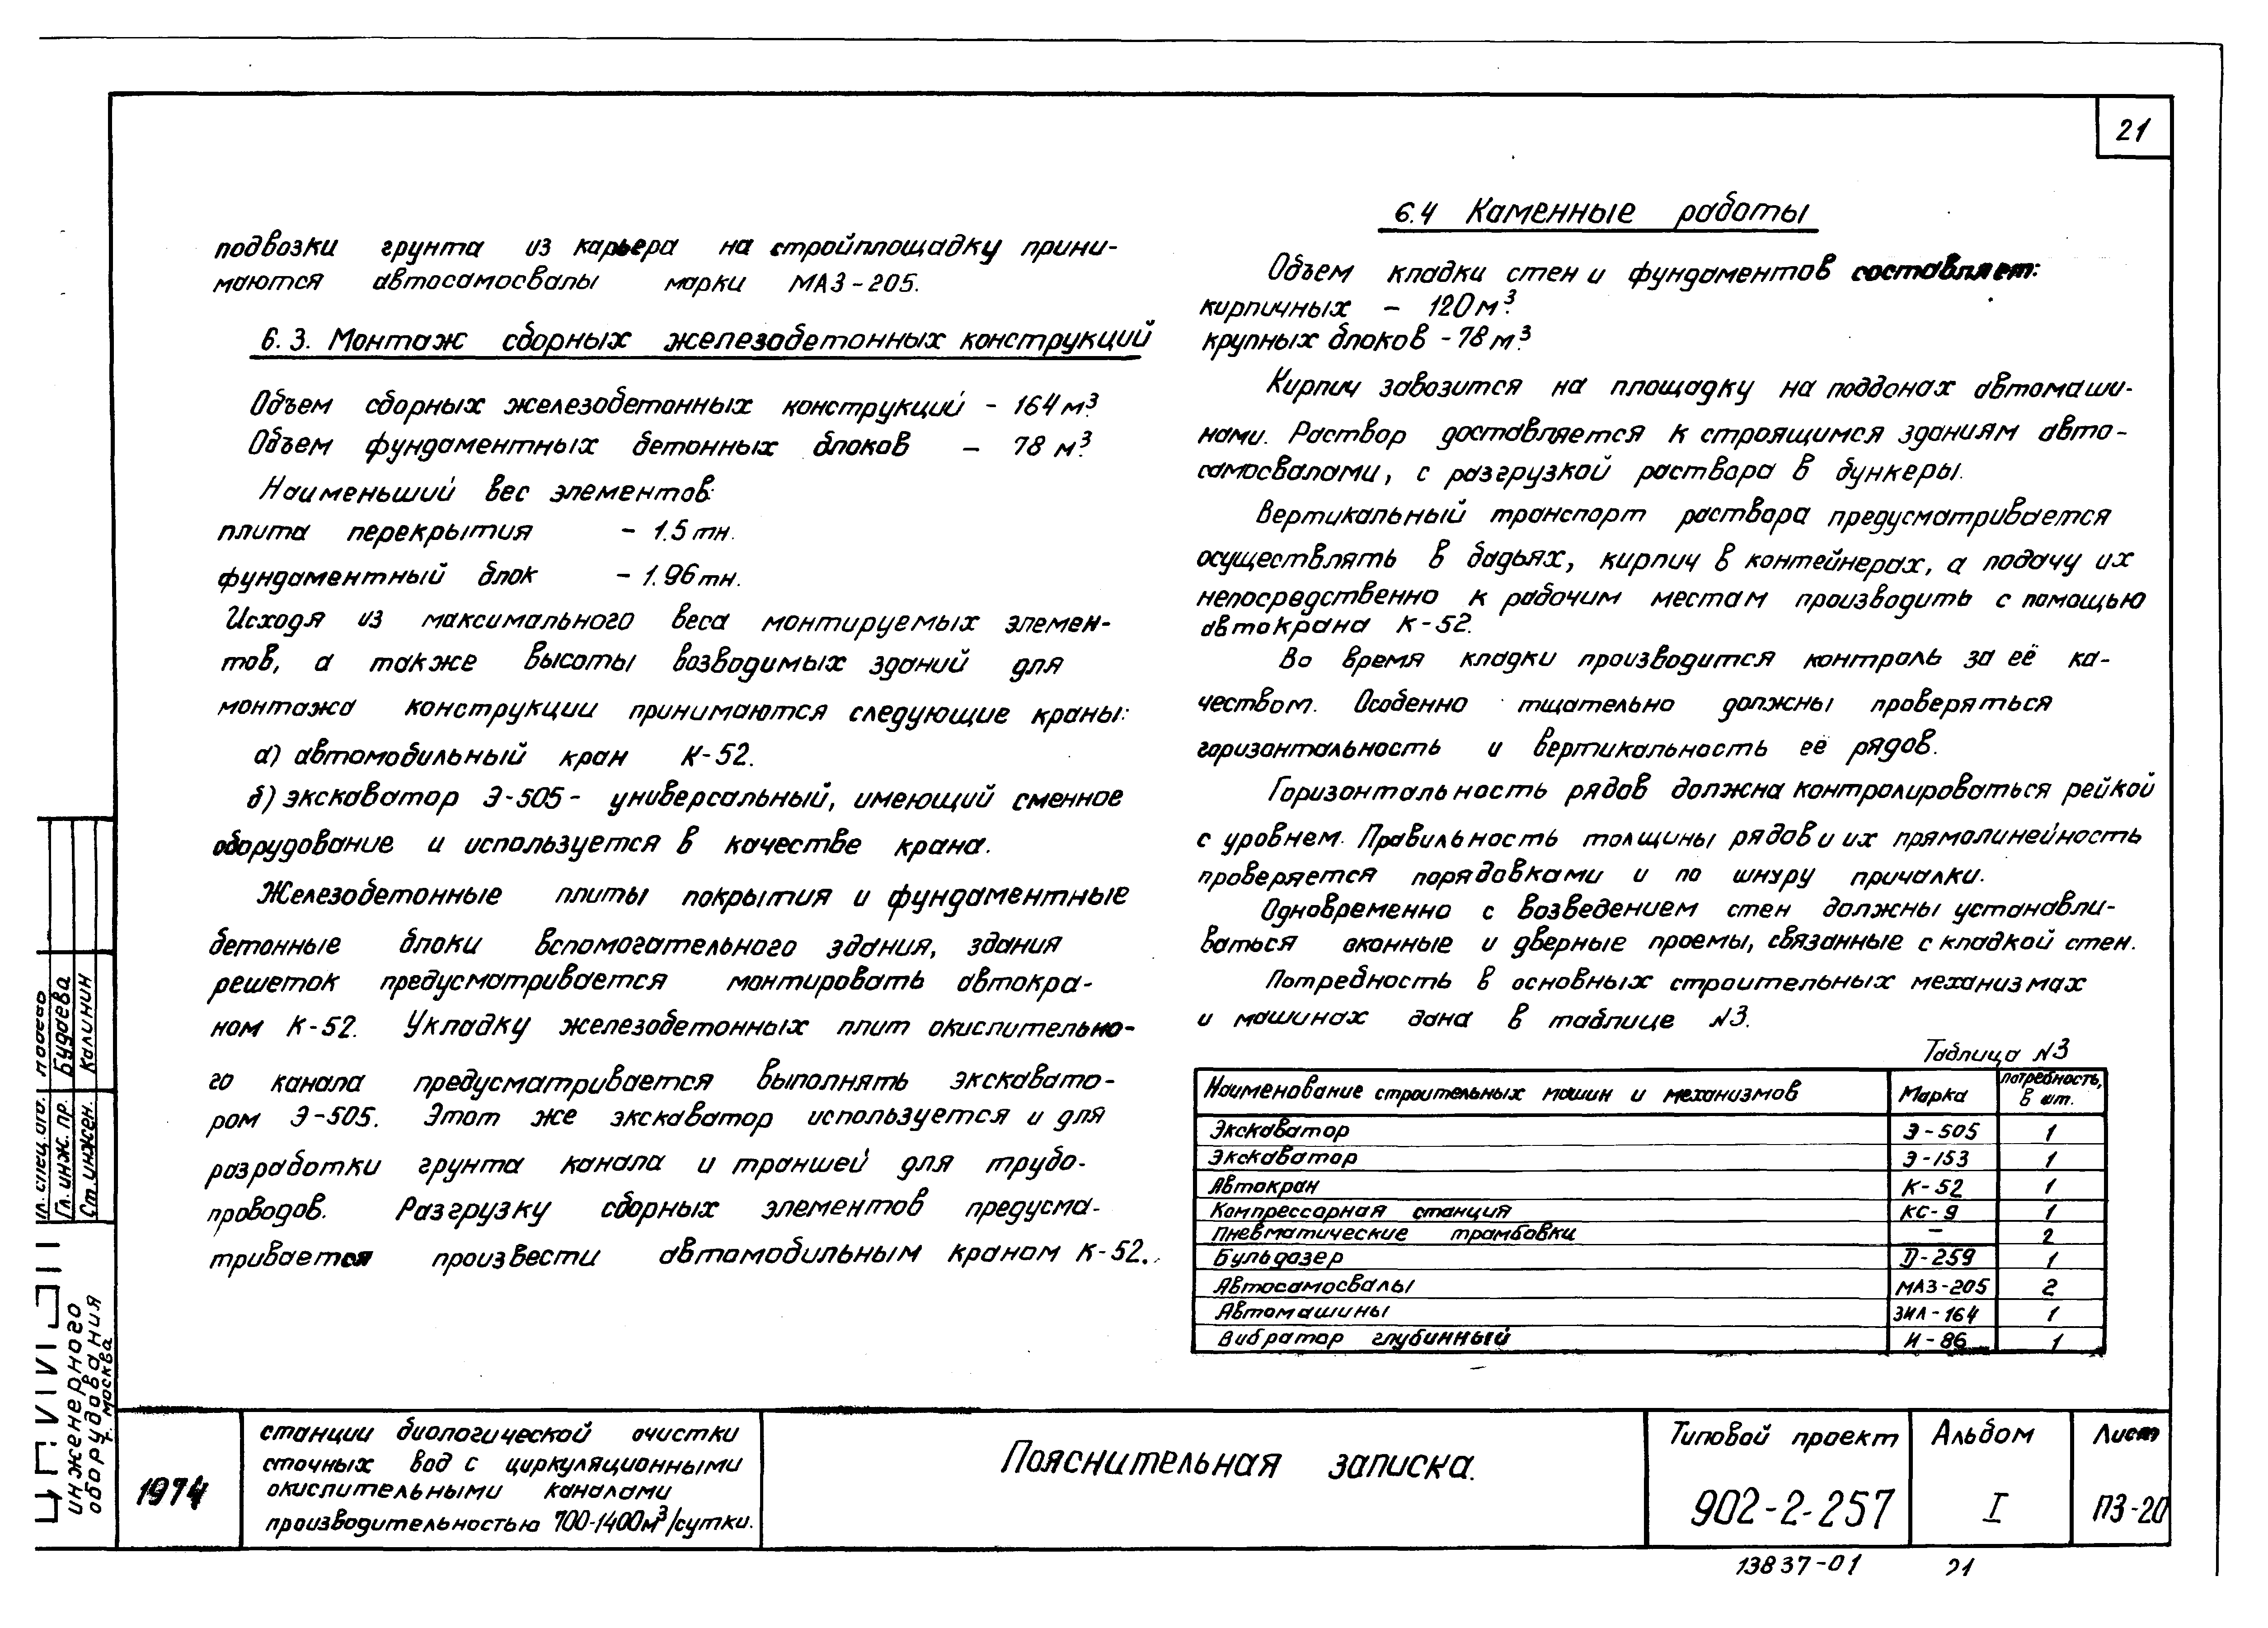 21
подвозки грунта из карьера на стройплощадку прини-
маются автосамосвалы марки МАЗ-205.
6.3. Монтаж сборных железобетонных конструкций
Объем сборных железобетонных конструкций - 164 м³.
Объем фундаментных бетонных блоков - 78 м³.
Наименьший вес элементов:
плита перекрытия - 1.5 тн.
фундаментный блок - 1.96 тн.
Исходя из максимального веса монтируемых элемен-
тов, а также высоты возводимых зданий для
монтажа конструкции принимаются следующие краны:
а) автомобильный кран К-52.
б) экскаватор Э-505 - универсальный, имеющий сменное
оборудование и используется в качестве крана.
Железобетонные плиты покрытия и фундаментные
бетонные блоки вспомогательного здания, здания
решеток предусматривается монтировать автокра-
ном К-52. Укладку железобетонных плит окислительно-
го канала предусматривается выполнять экскавато-
ром Э-505. Этот же экскаватор используется и для
разработки грунта канала и траншей для трубо-
проводов. Разгрузку сборных элементов предусма-
тривается произвести автомобильным краном К-52.
6.4 Каменные работы
Объем кладки стен и фундаментов составляет:
кирпичных - 120 м³.
крупных блоков - 78 м³.
Кирпич завозится на площадку на поддонах автомаши-
нами. Раствор доставляется к строящимся зданиям авто-
самосвалами, с разгрузкой раствора в бункеры.
Вертикальный транспорт раствора предусматривается
осуществлять в бадьях, кирпич в контейнерах, а подачу их
непосредственно к рабочим местам производить с помощью
автокрана К-52.
Во время кладки производится контроль за её ка-
чеством. Особенно тщательно должны проверяться
горизонтальность и вертикальность её рядов.
Горизонтальность рядов должна контролироваться рейкой
с уровнем. Правильность толщины рядов и их прямолинейность
проверяется порядовками и по шнуру причалки.
Одновременно с возведением стен должны устанавли-
ваться оконные и дверные проемы, связанные с кладкой стен.
Потребность в основных строительных механизмах
и машинах дана в таблице N3.
Таблица N3
Наименование строительных машин и механизмов Марка потребность, в шт.
Экскаватор Э-505 1
Экскаватор Э-153 1
Автокран К-52 1
Компрессорная станция КС-9 1
Пневматические трамбовки — 2
Бульдозер Д-259 1
Автосамосвалы МАЗ-205 2
Автомашины ЗИЛ-164 1
Вибратор глубинный И-86 1
Гл. спец. отд.
Гл. инж. пр. Будаева
Ст. инжен. Калинин
инженерного
оборудования
г. Москва
1974
станции биологической очистки
сточных вод с циркуляционными
окислительными каналами
производительностью 700-1400 м³/сутки.
Пояснительная записка.
Типовой проект
902-2-257
Альбом
I
Лист
ПЗ-20
13837-01 21